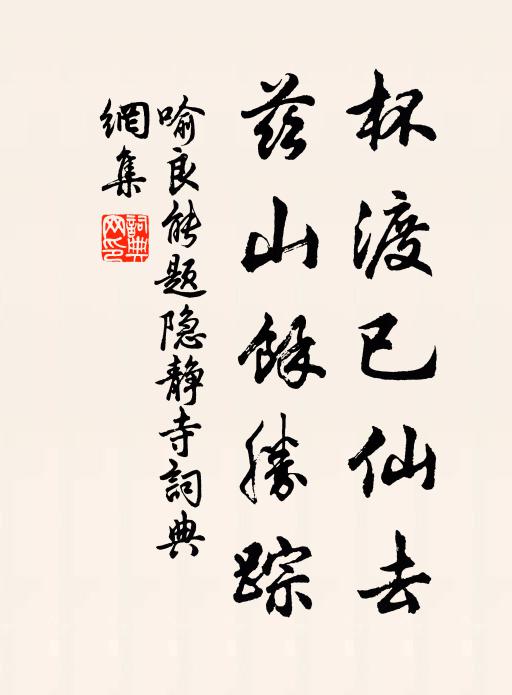 杯渡已仙去
兹山餘勝踪
喻良能题隐静寺詞典
網集
詞典
网印